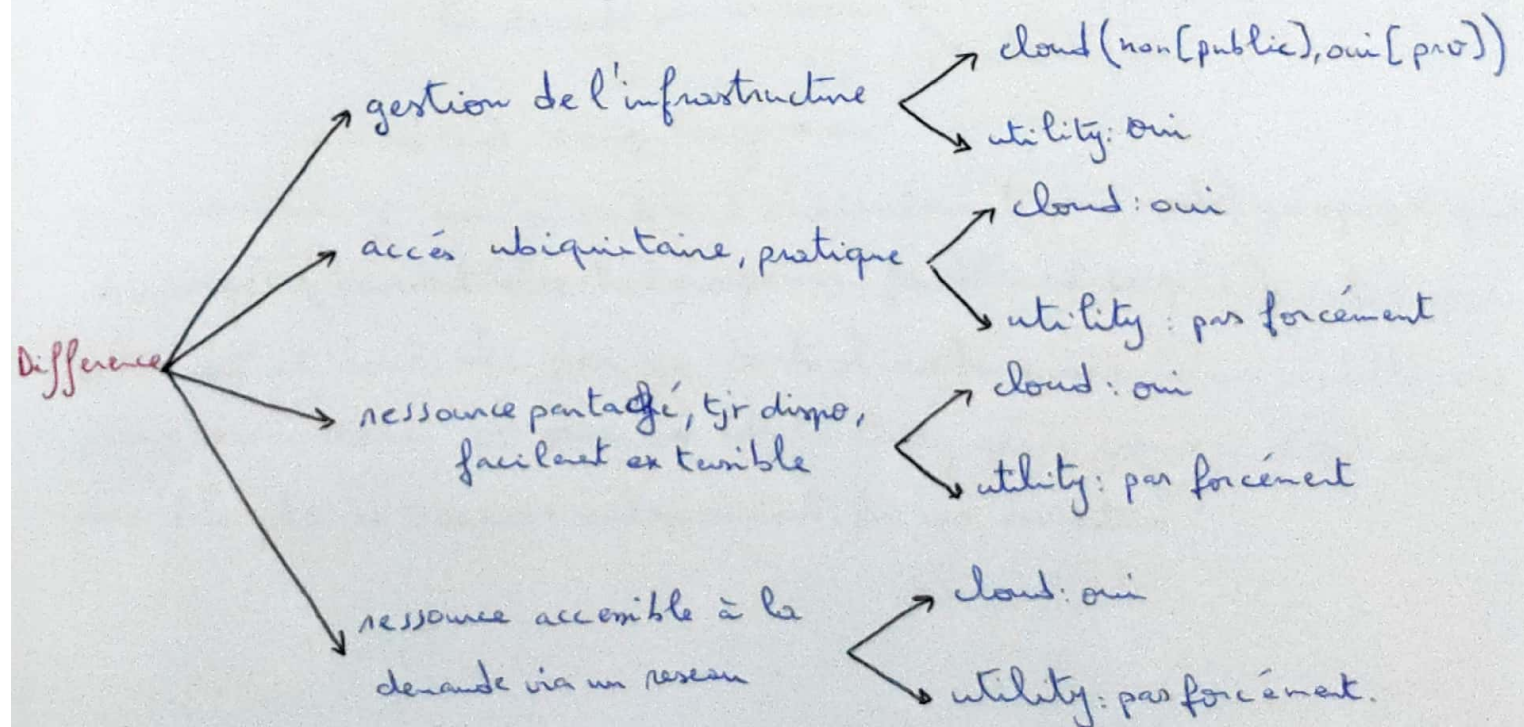 Difference
gestion de l'infrastructure
cloud (non [public], oui [pro])
utility: oui
accés ubiquitaire, pratique
cloud: oui
utility: pas forcément
ressource partagé, tjr dispo,
facilemt extensible
cloud: oui
utility: pas forcément
ressource accessible à la
demande via un reseau
cloud: oui
utility: pas forcément.